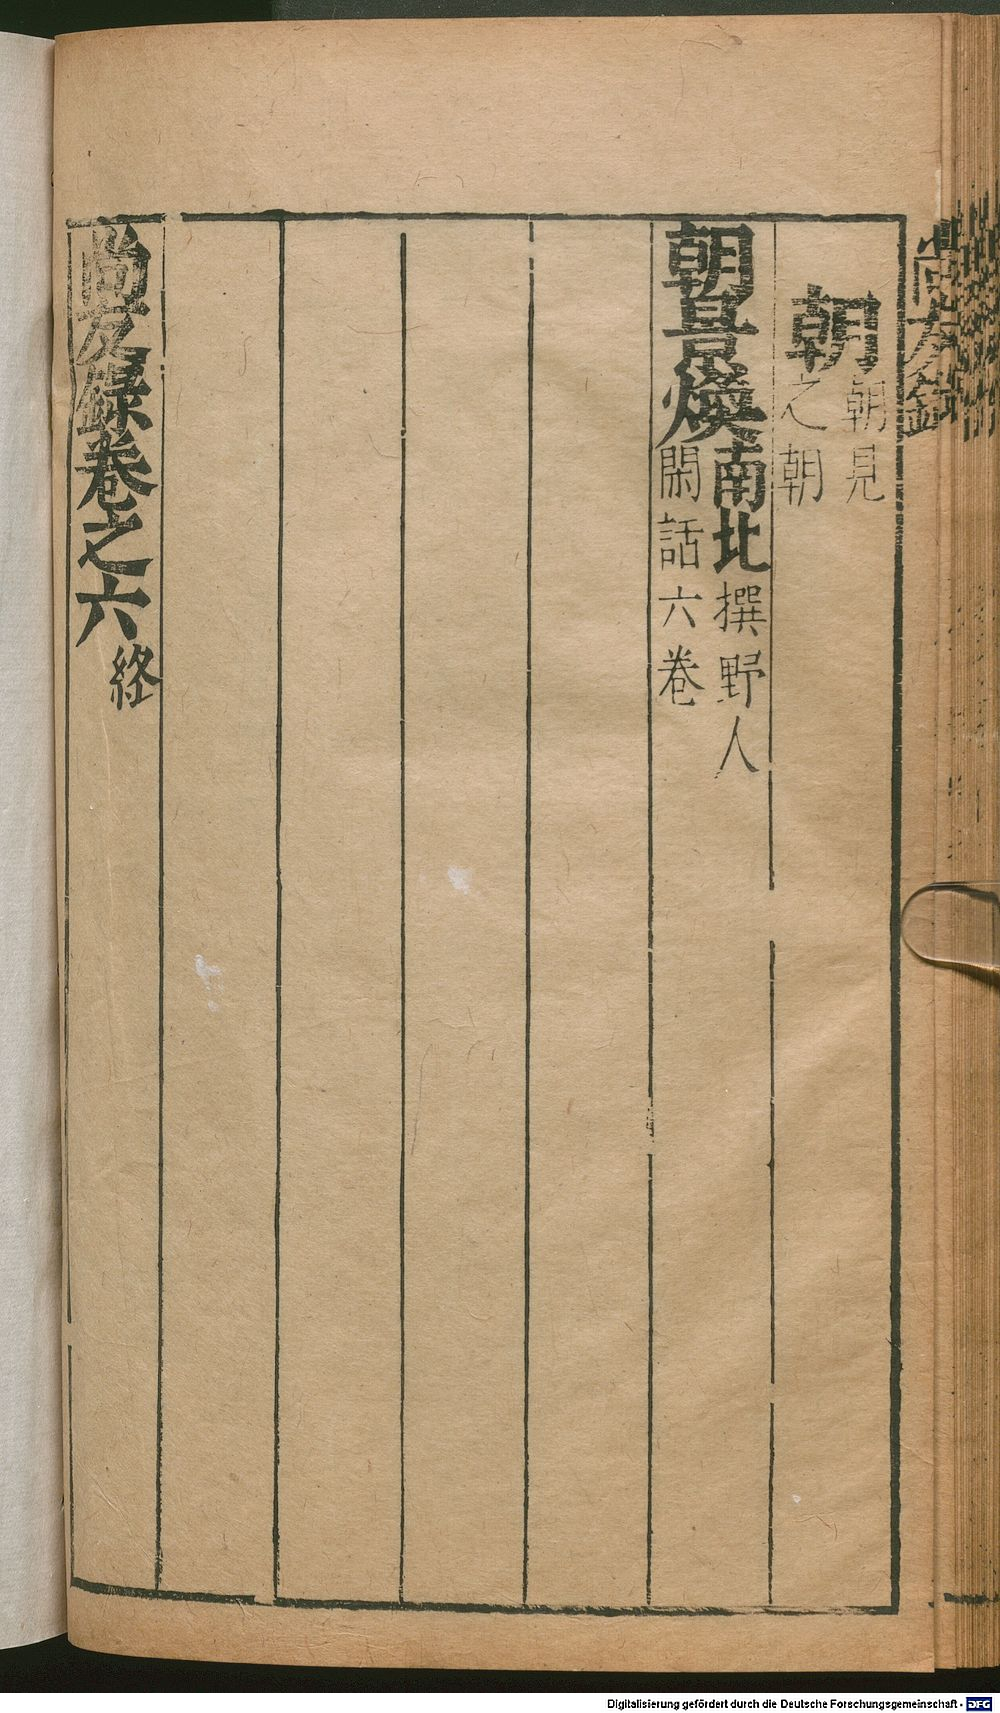 尚友錄
朝 朝見之朝
朝吾煥 南北 撰野人閑話六卷
尚友錄卷之六 終
Digitalisierung gefördert durch die Deutsche Forschungsgemeinschaft - DFG